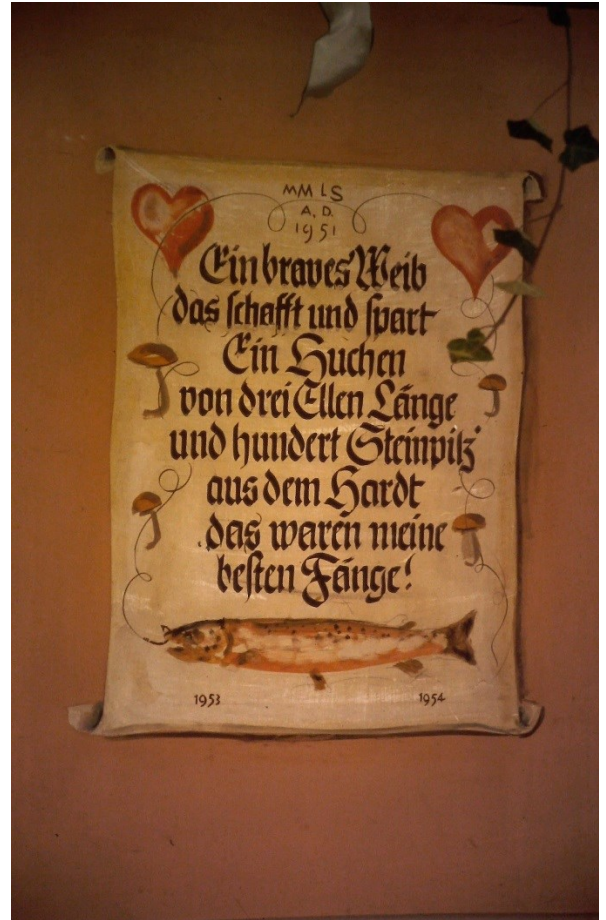 MM LS
A. D.
1951
Ein braves Weib
das schafft und spart
Ein Huchen
von drei Ellen Länge
und hundert Steinpilz'
aus dem Hardt
das waren meine
besten Fänge!
1953 1954